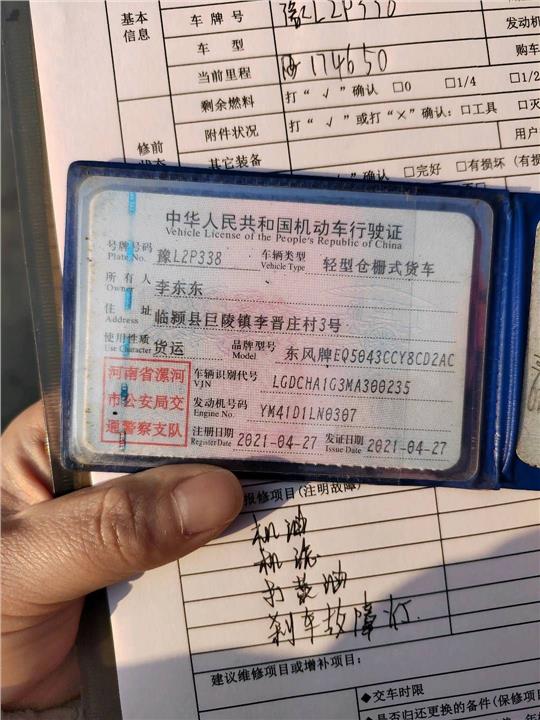 基本信息
车牌号 豫L2P338 发动机
车型 购车
当前里程 174650
剩余燃料 打“√”确认 □0 □1/4 □1/2
附件状况 打“√”或打“×”确认：□工具 □灭
修前状态 其它装备 用户
确认 □完好 □有损坏（有损
中华人民共和国机动车行驶证
Vehicle License of the People's Republic of China
号牌号码 Plate No. 豫L2P338 车辆类型 Vehicle Type 轻型仓栅式货车
所有人 Owner 李东东
住址 Address 临颍县巨陵镇李晋庄村3号
使用性质 Use Character 货运 品牌型号 Model 东风牌EQ5043CCY8CD2AC
河南省漯河市公安局交通警察支队
车辆识别代号 VIN LGDCHA1G3MA300235
发动机号码 Engine No. YM41D1LN0307
注册日期 Register Date 2021-04-27 发证日期 Issue Date 2021-04-27
报修项目(注明故障)
机油
机滤
打黄油
刹车故障灯
建议维修项目或增补项目：
◆交车时限
◆是否归还更换的备件(保修项